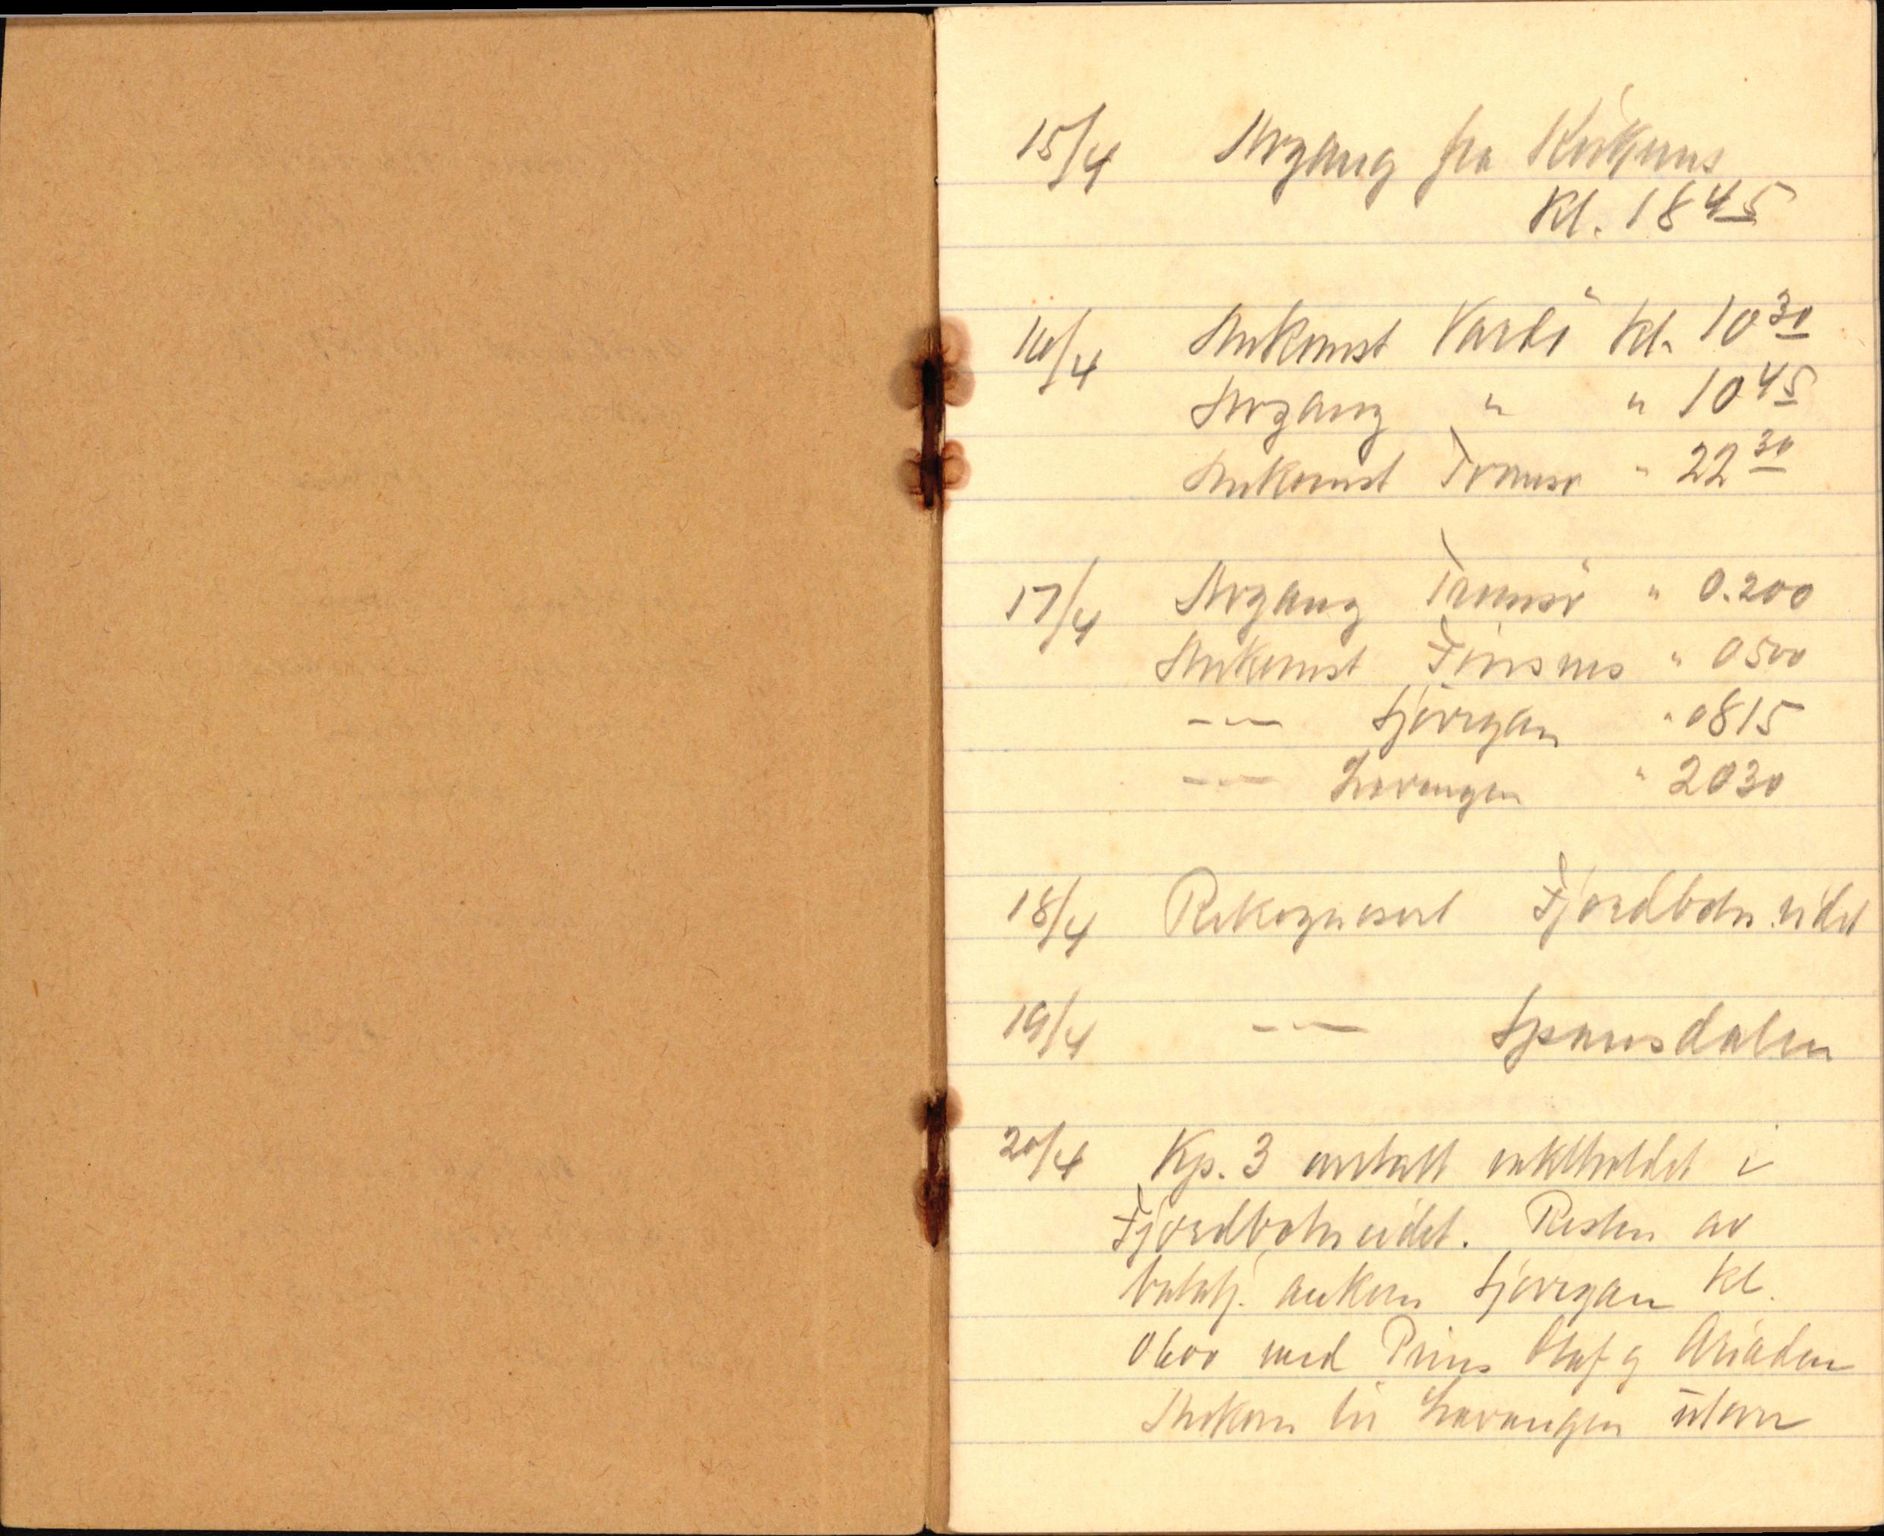 15/4 Avgang fra Kirkenes
kl. 18 45
16/4 Ankomst Vardö kl. 10 30
Avgang " " 10 45
Ankomst Tromsö " 22 30
17/4 Avgang Tromsö " 0.200
Ankomst Finsnes " 0500
—"— Sjövegan " 0815
—"— Lavangen " 2030
18/4 Rekognosert Fjordbotneidet
19/4 —"— Spansdalen
20/4 Kp. 3 avtatt vaktholdet i
Fjordbotneidet. Resten av
bataj. ankom Sjövegan kl.
0600 med Prins Olaf og Ariadne
Ankom til Lavangen utover